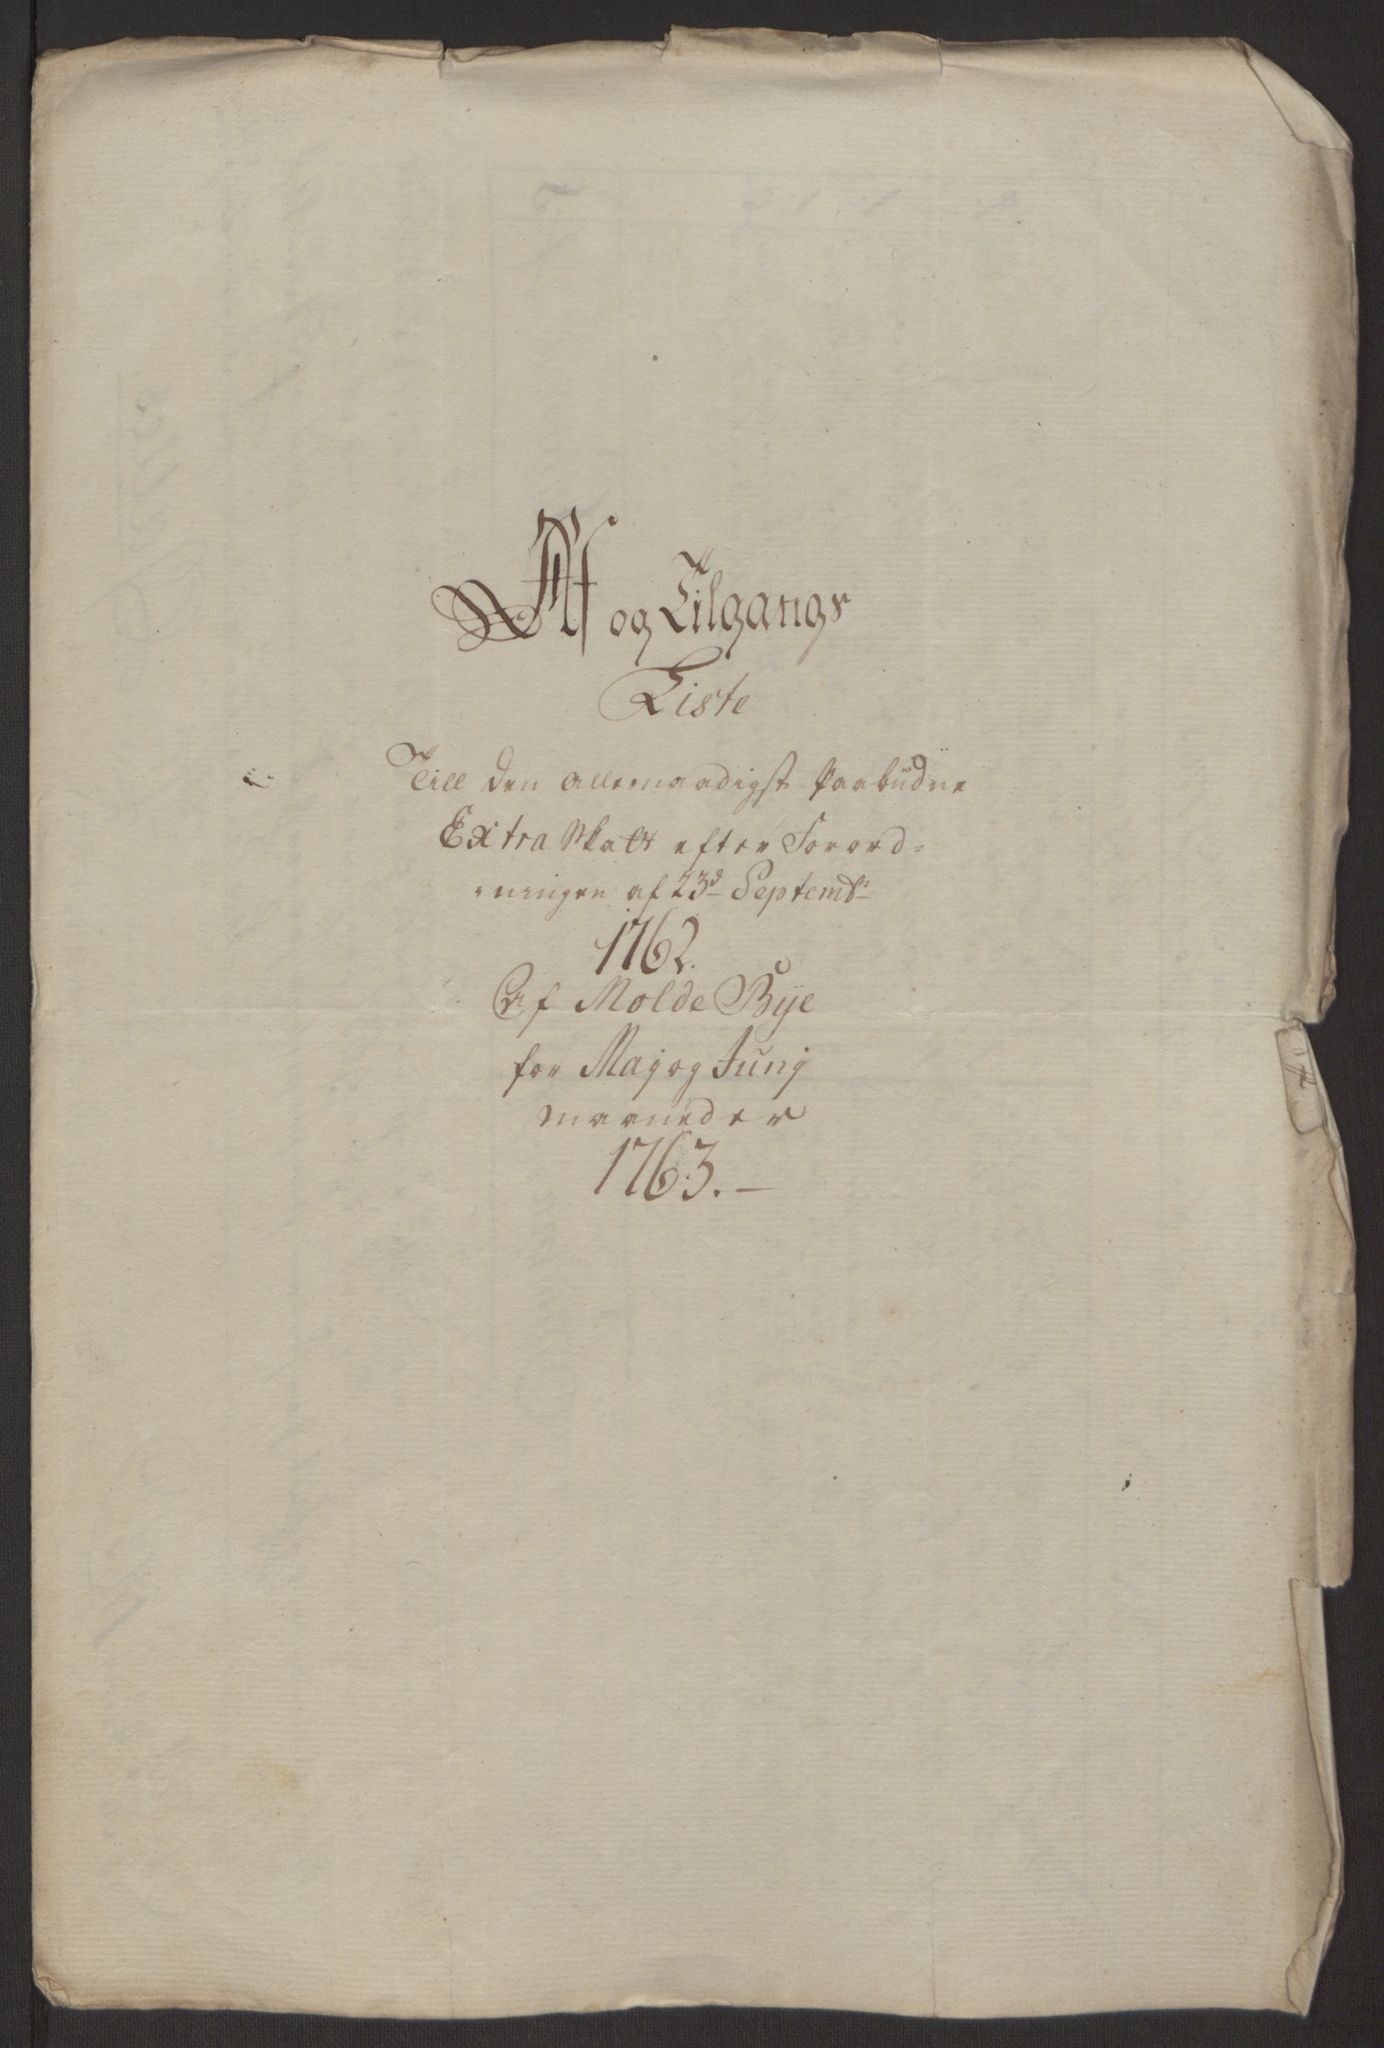 Af og Tilgangs
Liste
Till den allernaadigst Paabudne
Extra Skatt efter Forord-
-ningen af 23d Septembr
1762.
Af Molde Bye
for Maj og Junj
maaneder
1763. —